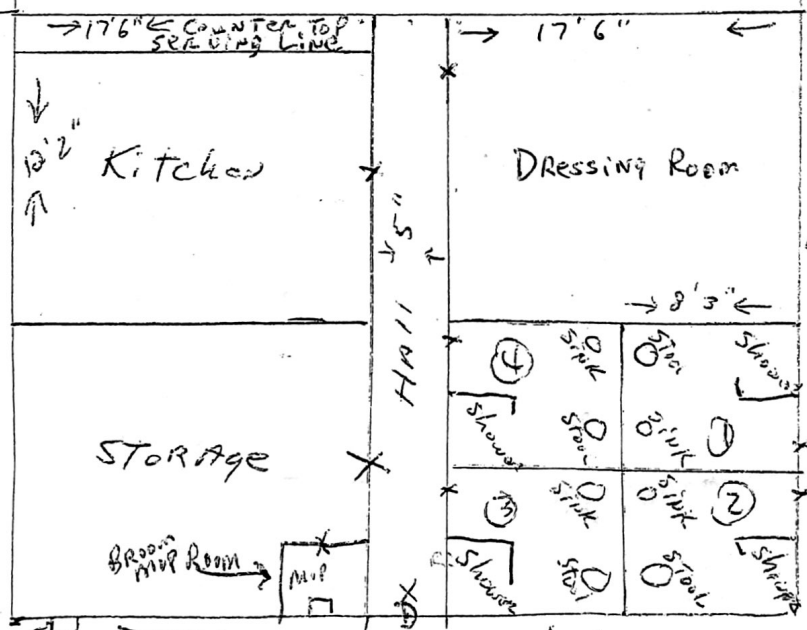 17'6" COUNTER TOP
SERVING LINE
17'6"
10'2"
Kitchen
DRessiNg Room
5"
HAll
8'3"
STORAge
BROOM
MOP Room
MOP
4
SiNK
Stool
Shower
Shower
Stool
SiNK
1
3
SiNK
SiNK
2
Shower
Stool
Stool
Shower